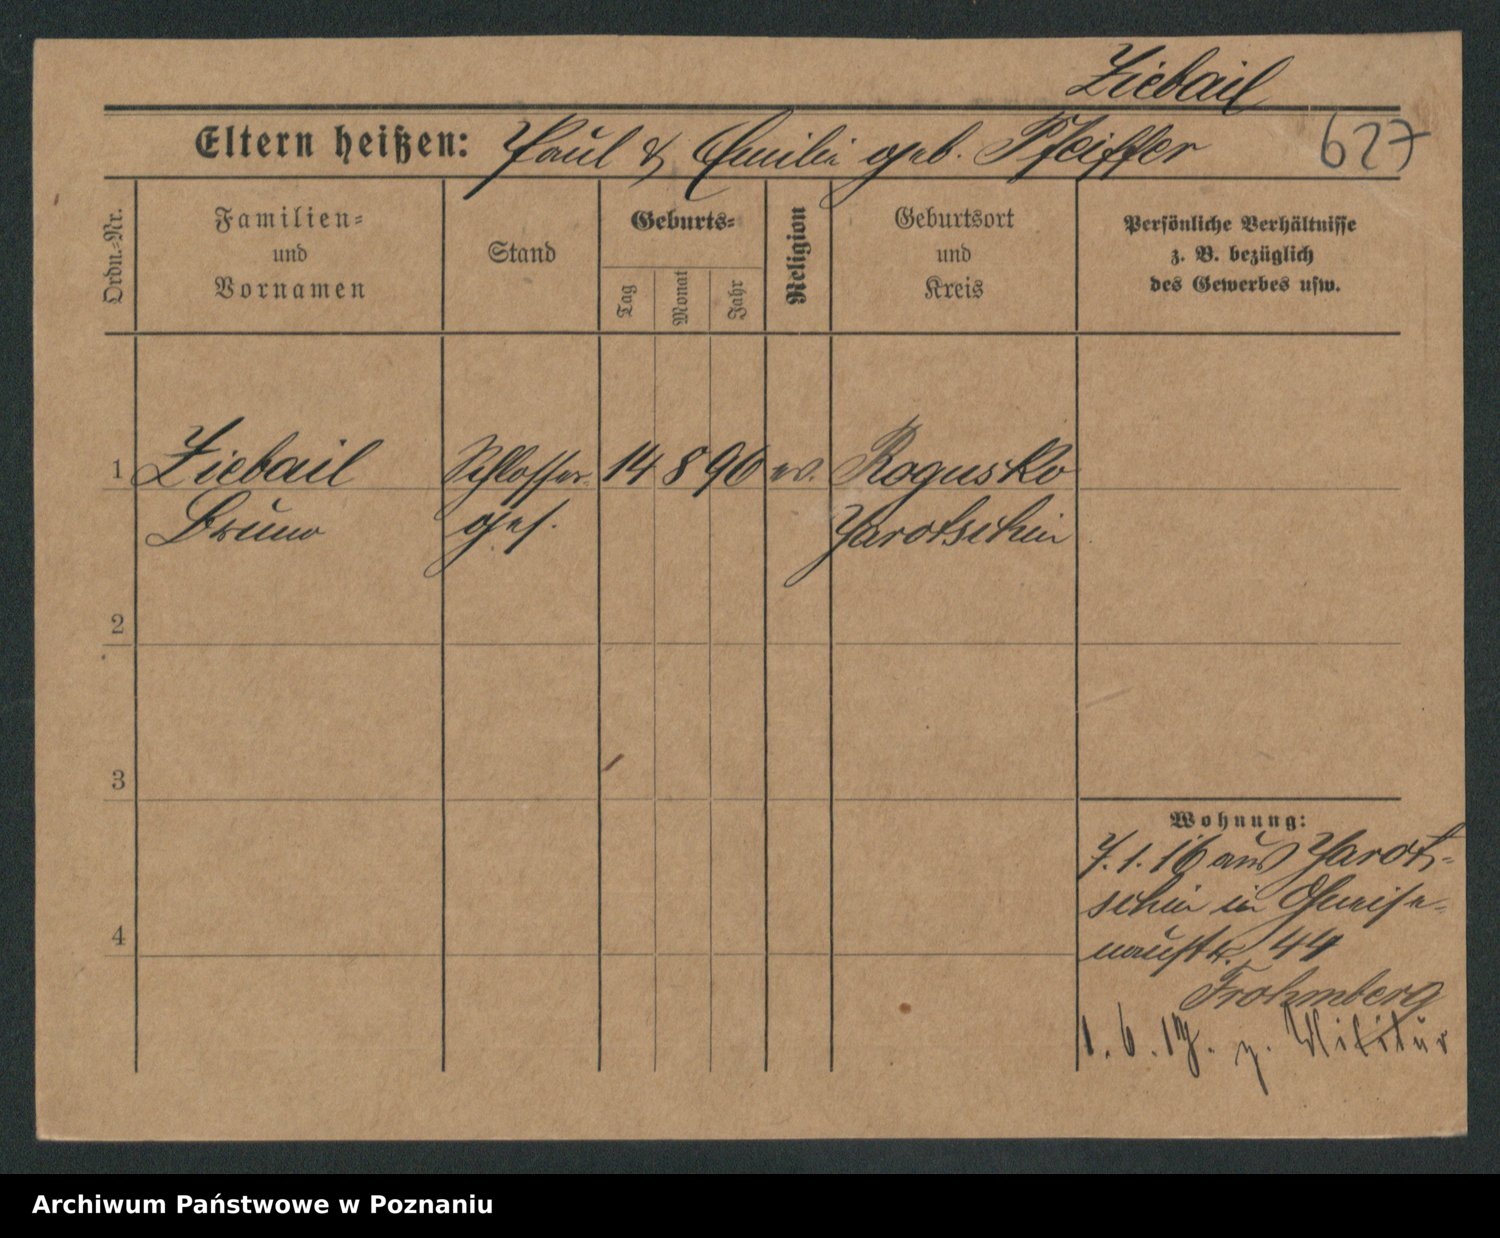 Ziebail
Eltern heißen: Paul & Emilie geb. Pfeiffer
627
Ordn.-Nr.
Familien-
und
Vornamen
Stand
Geburts-
Tag
Monat
Jahr
Religion
Geburtsort
und
Kreis
Persönliche Verhältnisse
z. B. bezüglich
des Gewerbes usw.
1 Ziebail Schlosser 14 8 96 ev. Rogusko
Bruno ges. Jarotschin
2
3
Wohnung:
7. 1. 16 aus Jarot-
schin in Gneise-
naustr. 44
4
Frohmberg
1. 6. 17. z. Militär
Archiwum Państwowe w Poznaniu